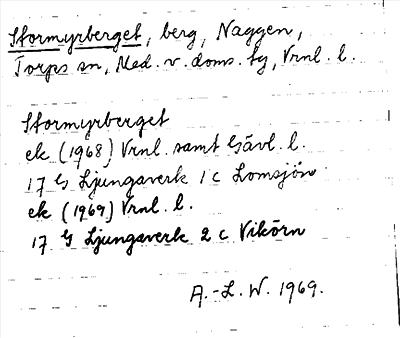 Stormyrberget, berg, Naggen,
Torps sn, Med. v. doms. tg, Vrnl. l.
Stormyrberget
ek (1968) Vrnl. samt Gävl. l.
17 G Ljungaverk 1 c Lomsjön
ek (1969) Vrnl. l.
17 G Ljungaverk 2 c Vikörn
A.-L. W. 1969.